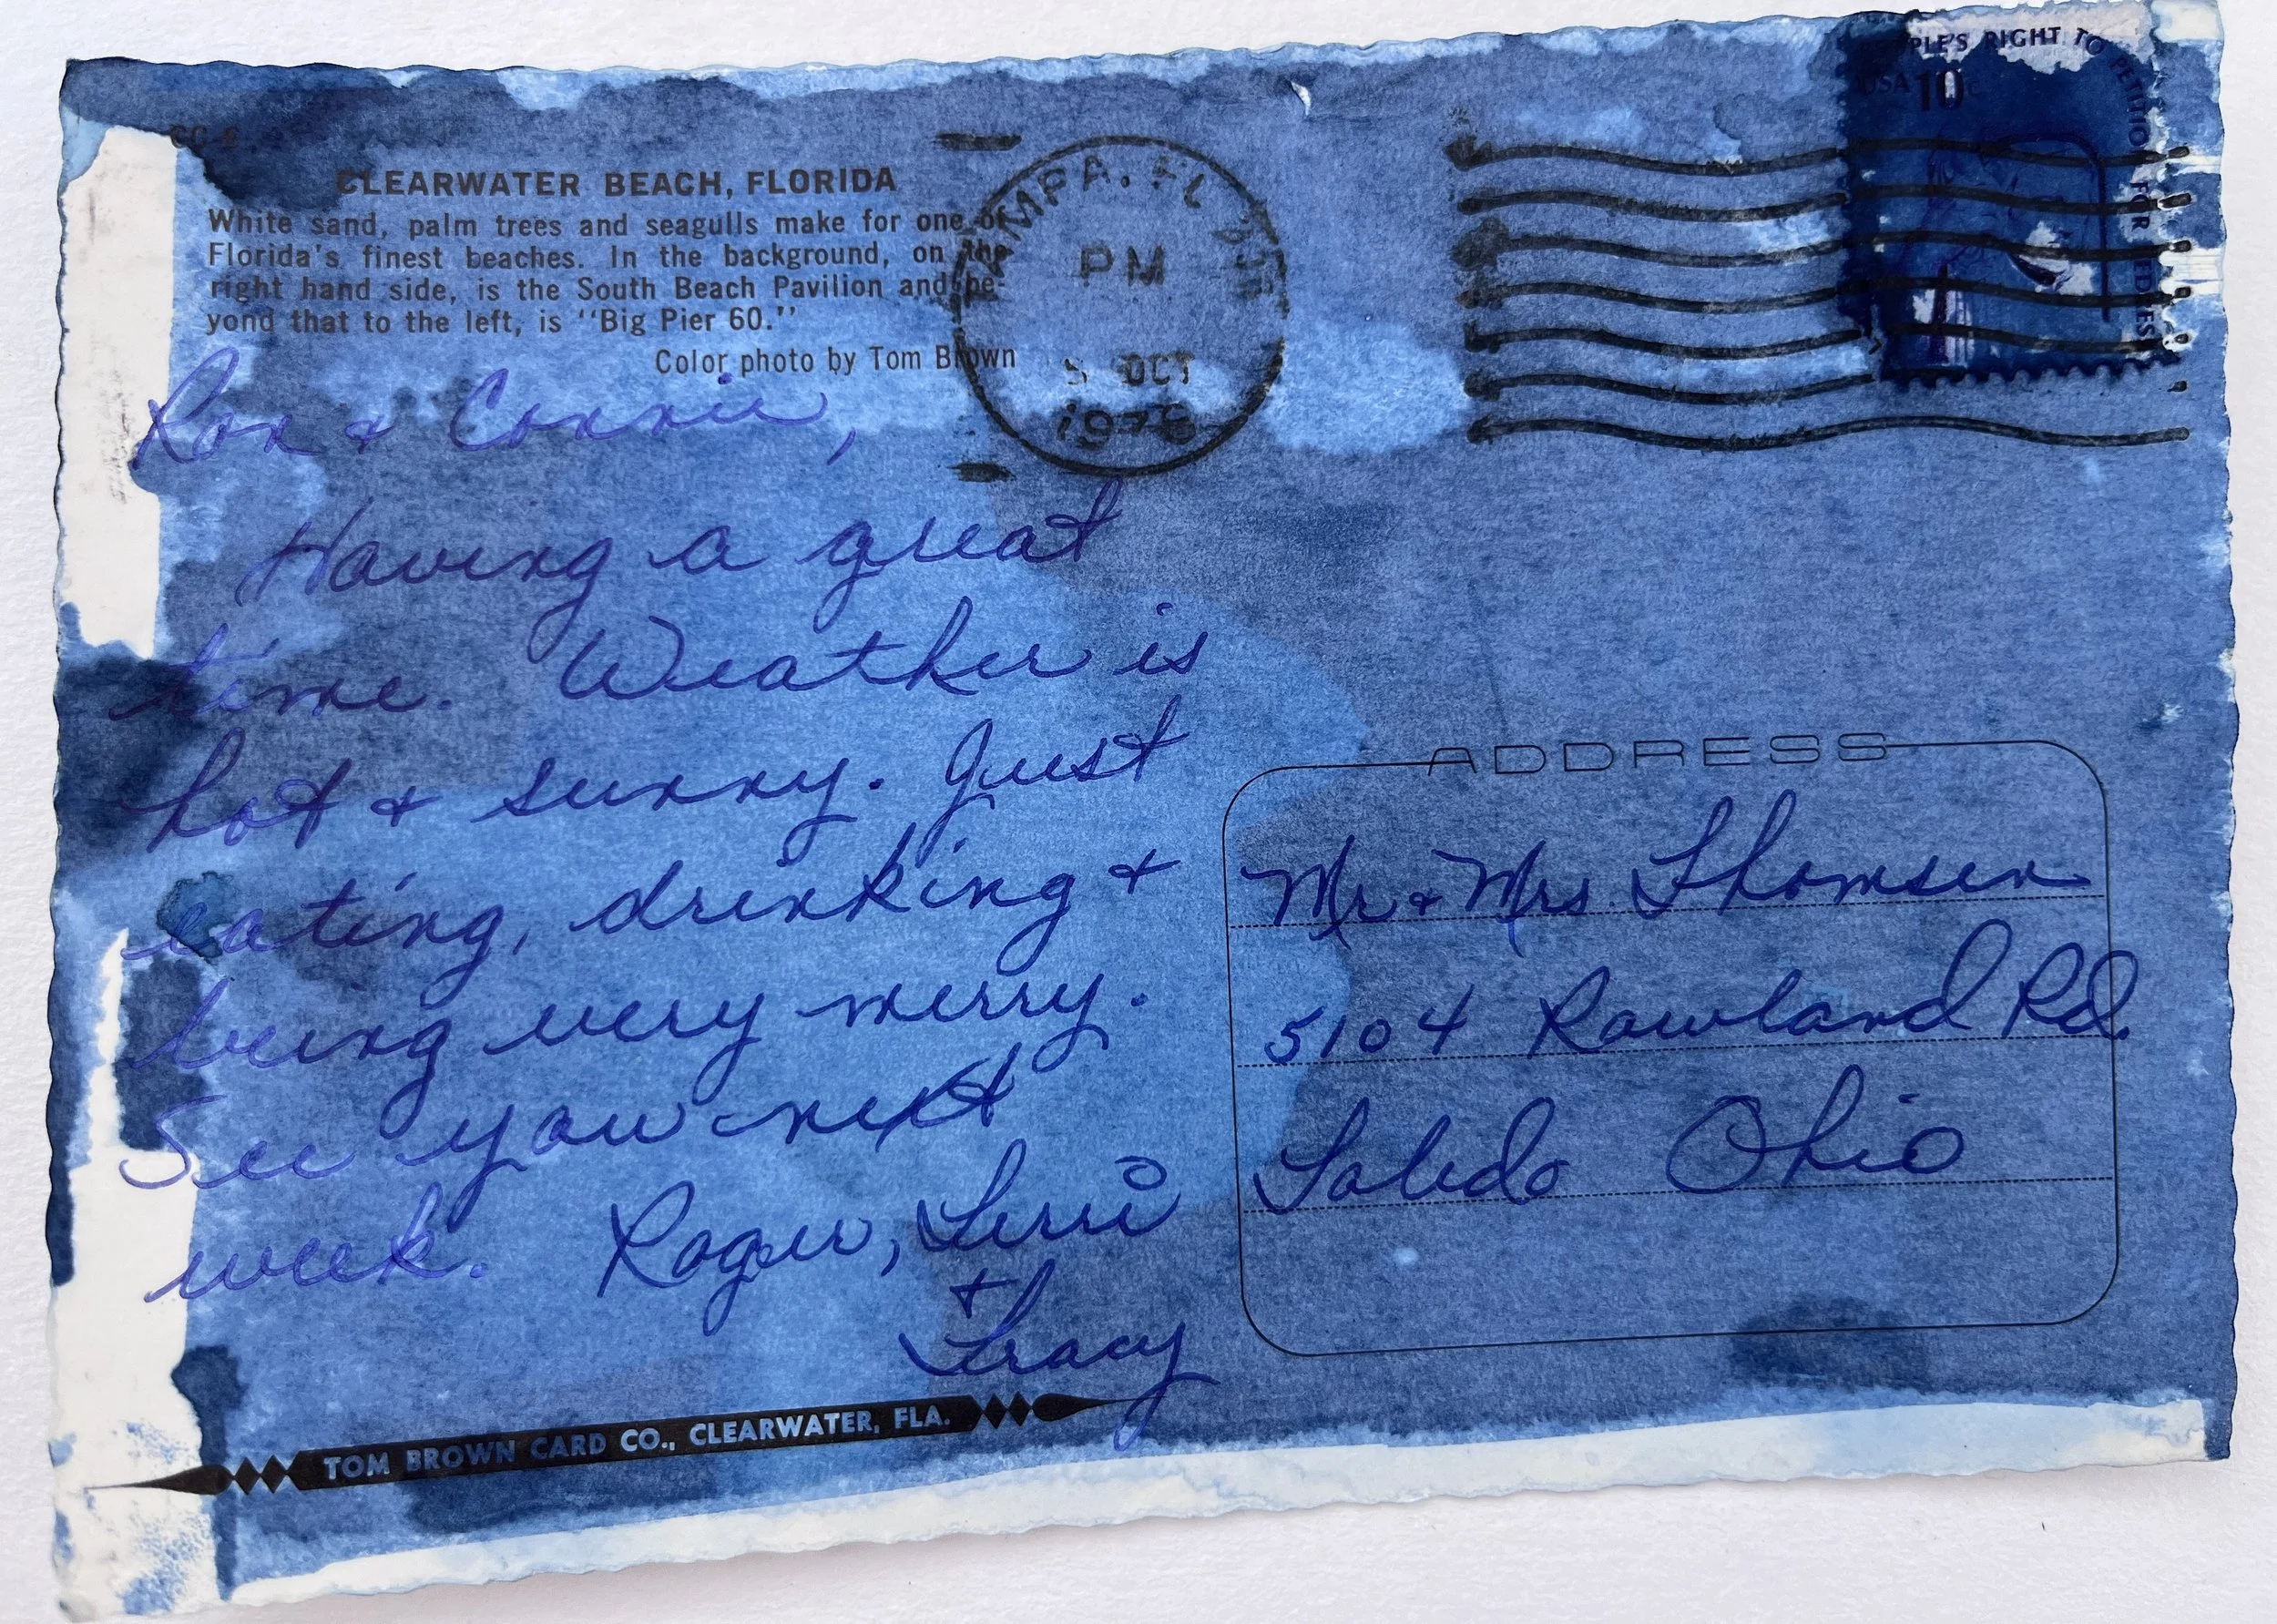 CLEARWATER BEACH, FLORIDA
White sand, palm trees and seagulls make for one of
Florida's finest beaches. In the background, on the
right hand side, is the South Beach Pavilion and be-
yond that to the left, is "Big Pier 60."
Color photo by Tom Brown
TAMPA, FL
PM
5 OCT
PLE'S RIGHT TO PETITION FOR REDRESS
USA 10c
Ron & Connie,
Having a great
time. Weather is
hot & sunny. Just
eating, drinking &
being very merry.
See you next
week. Roger, Terri
& Tracy
ADDRESS
Mr & Mrs. Thomsen
5104 Rowland Rd.
Toledo Ohio
TOM BROWN CARD CO., CLEARWATER, FLA.